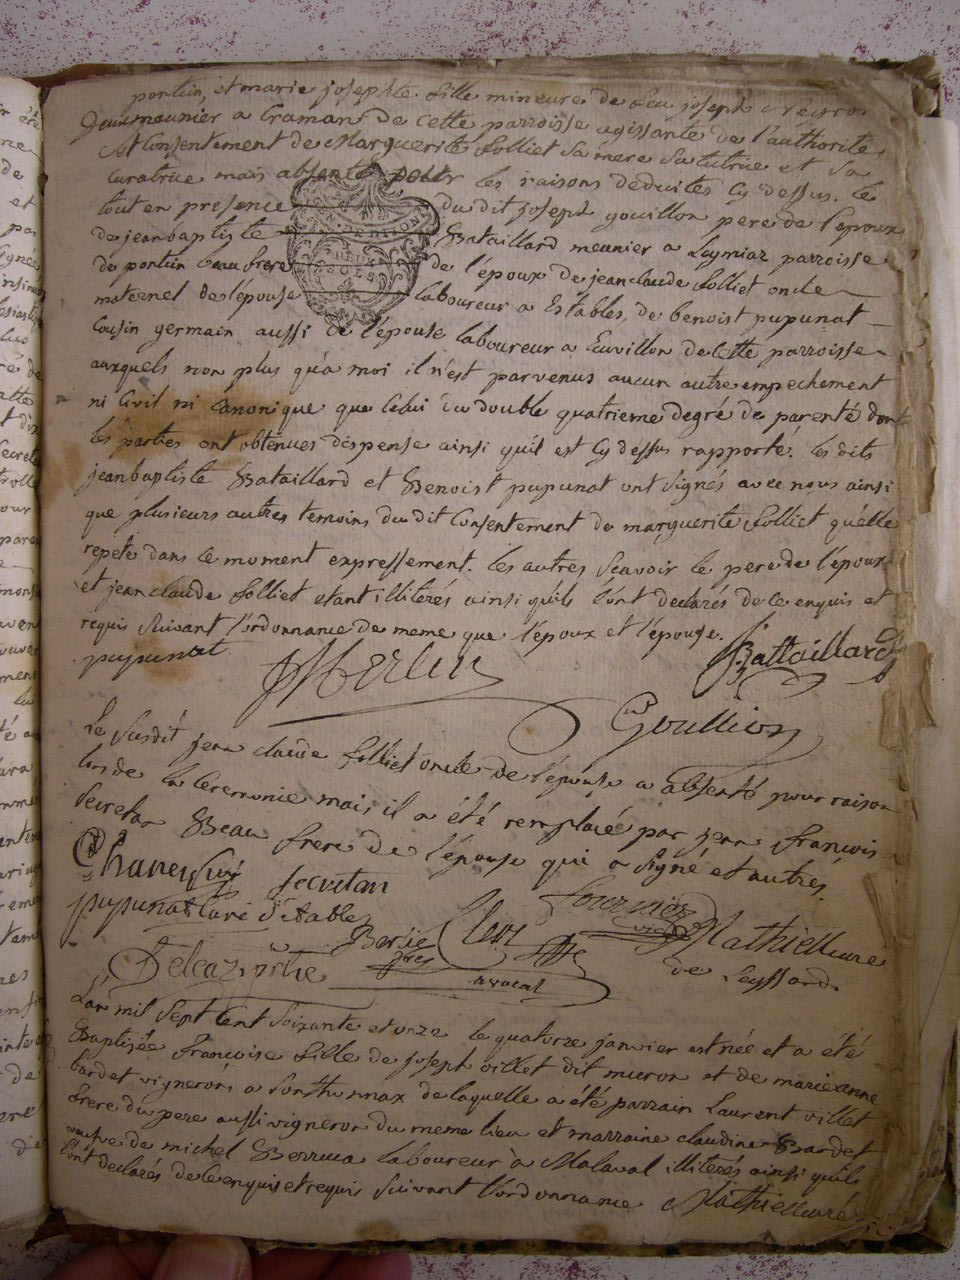 pontin, et marie josephte fille mineure de feu joseph
meunier a Craman de cette parroisse agissante de l'authorité
et Consentement de Marguerite folliet sa mere sa tutrice et sa
curatrice mais absente pour les raisons deduites cy dessus. le
tout en presence du dit joseph gouillon pere de l'epoux
de jeanbaptiste Bataillard meunier a Leymiaz parroisse
de pontin beau frere de l'époux de jeanclaude folliet oncle
maternel de l'épouse laboureur a Estables, de benoist pupunat
Cousin germain aussi de l'épouse laboureur a Eccuillon de Cette parroisse
auxquels non plus qu'à moi il n'est parvenus aucun autre empechement
ni Civil ni Canonique que Celui du double quatrieme degré de parenté dont
les parties ont obtenues dispense ainsi qu'il est cy dessus rapporté. les dits
jeanbaptiste Bataillard et Benoist pupunat ont signés avec nous ainsi
que plusieurs autres temoins du dit Consentement de marguerite folliet qu'elle
repete dans le moment expressement. les autres scavoir le pere de l'époux
et jean claude folliet etant illiterés ainsi qu'ils l'ont declarés de ce enquis et
requis suivant l'ordonnance de meme que l'époux et l'épouse.
pupunat Battaillard
Gouillion
Le susdit jean claude folliet oncle de l'épouse a absenté pour raison
lors de la Ceremonie mais il a été remplacé par jean francois
secretan Beau frere de l'épouse qui a signé et autres.
secretan
pupunat Curé d'Etables fournier Mathieu Cure
avocat de Leyssard.
L'an mil sept Cent soixante et onze le quatorze janvier est née et a été
Baptisée francoise fille de joseph villet dit muron et de marieanne
bardet vignerons a Sonthonnax de laquelle a été parrain Laurent villet
frere du pere aussi vigneron du meme lieu et marraine claudine Bardet
veuve de michel Berrua laboureur à Malaval illiterés ainsi qu'ils
l'ont declarés de ce enquis et requis suivant l'ordonnance Mathieu Curé